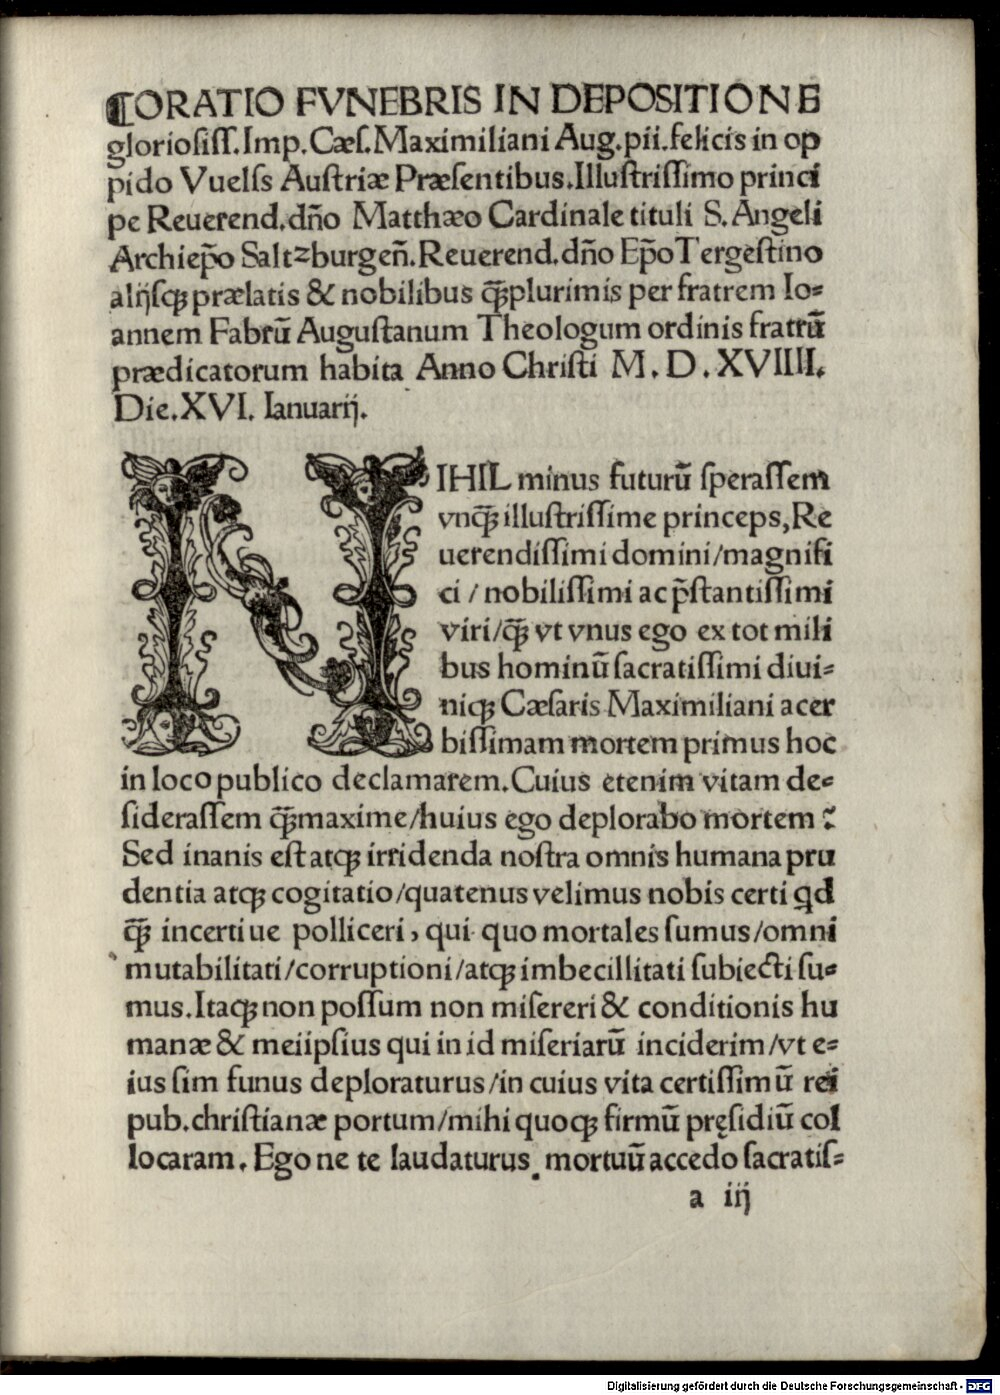 ¶ORATIO FVNEBRIS IN DEPOSITIONE
glorioſiſſ.Imp.Cæſ.Maximiliani Aug.pii.felicis in op
pido Vuelſs Auſtriæ Præſentibus.Illuſtriſſimo princi
pe Reuerend.dño Matthæo Cardinale tituli S.Angeli
Archiep̃o Saltzburgeñ.Reuerend.dño Ep̃o Tergeſtino
alijſqꝫ prælatis & nobilibus q̃ꝫplurimis per fratrem Io⸗
annem Fabrũ Auguſtanum Theologum ordinis fratrũ
prædicatorum habita Anno Chriſti M.D.XVIIII.
Die.XVI. Ianuarij.
NIHIL minus futurũ ſperaſſem
vnq̃ꝫ illuſtriſſime princeps,Re
uerendiſſimi domini/magnifi
ci/nobiliſſimi ac p̃ſtantiſſimi
viri/q̃ꝫ vt vnus ego ex tot mili
bus hominũ ſacratiſſimi diui⸗
niqꝫ Cæſaris Maximiliani acer
biſſimam mortem primus hoc
in loco publico declamarem.Cuius etenim vitam de⸗
ſideraſſem q̃ꝫmaxime/huius ego deplorabo mortem?
Sed inanis eſt atqꝫ irridenda noſtra omnis humana pru
dentia atqꝫ cogitatio/quatenus velimus nobis certi qd
q̃ꝫ incertiue polliceri, qui quo mortales ſumus/omni
mutabilitati/corruptioni/atqꝫ imbecillitati ſubiecti ſu⸗
mus.Itaqꝫ non poſſum non miſereri & conditionis hu
manæ & meiipſius qui in id miſeriarũ inciderim/vt e⸗
ius ſim funus deploraturus/in cuius vita certiſſimũ rei
pub.chriſtianæ portum/mihi quoqꝫ firmũ pręſidiũ col
locaram. Ego ne te laudaturus mortuũ accedo ſacratiſ⸗
a iij
Digitalisierung gefördert durch die Deutsche Forschungsgemeinschaft - DFG